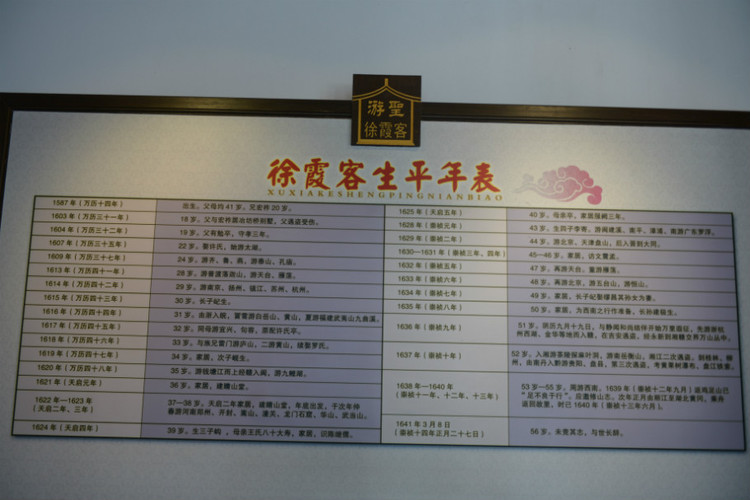 游聖
徐霞客
徐霞客生平年表
XUXIAKESHENGPINGNIANBIAO
1587 年（万历十四年）
出生，父母均 41 岁，兄宏祚 20 岁。
1603 年（万历三十一年）
18 岁，父与宏祚居冶坊桥别墅，父遇盗受伤。
1604 年（万历三十二年）
19 岁，父有勉卒，守孝三年。
1607 年（万历三十五年）
22 岁，娶许氏，始游太湖。
1609 年（万历三十七年）
24 岁，游齐、鲁、燕，游泰山、孔庙。
1613 年（万历四十一年）
28 岁，游普渡落迦山，游天台、雁荡。
1614 年（万历四十二年）
29 岁，游南京、扬州、镇江、苏州、杭州。
1615 年（万历四十三年）
30 岁，长子屺生。
1616 年（万历四十四年）
31 岁，由浙入皖，冒雪游白岳山、黄山，夏游福建武夷山九曲溪。
1617 年（万历四十五年）
32 岁，同母游宜兴、句容，原配许氏卒。
1618 年（万历四十六年）
33 岁，与族兄雷门游庐山，二游黄山，续娶罗氏。
1619 年（万历四十七年）
34 岁，家居，次子岘生。
1620 年（万历四十八年）
35 岁，游钱塘江而上经赣入闽，游九鲤湖。
1621 年（天启元年）
36 岁，家居，建晴山堂。
1622 — 1623 年
（天启二年、三年）
37—38 岁，天启二年家居，建晴山堂，年底出发，于次年仲
春游河南郑州、开封、嵩山、潼关、龙门石窟、华山、武当山。
1624 年（天启四年）
39 岁，生三子岣，母亲王氏八十大寿，家居，识陈继儒。
1625 年（天启五年）
40 岁，母亲卒，家居服阕三年。
1628 年（崇祯元年）
43 岁，生四子李寄，游闽建溪、南平、漳浦、南游广东罗浮。
1629 年（崇祯二年）
44 岁，游北京、天津盘山，后入晋到大同。
1630—1631 年（崇祯三年、四年）
45—46 岁，家居，访文震孟。
1632 年（崇祯五年）
47 岁，再游天台，重游雁荡。
1633 年（崇祯六年）
48 岁，再游北京，游五台山，游恒山。
1634 年（崇祯七年）
49 岁，家居，长子屺娶缪昌其孙女为妻。
1635 年（崇祯八年）
50 岁，家居，为西南之行作准备，长孙建极生。
1636 年（崇祯九年）
51 岁，阴历九月十九日，与静闻和尚结伴开始万里遐征，先旅游杭
州西湖、金华等地而入赣，在吉安遇盗，经永新到南赣交界万山丛中。
1637 年（崇祯十年）
52 岁，入湖游茶陵保麻叶洞，游南岳衡山，湘江二次遇盗，到桂林、柳
州，由南丹入黔游贵阳，盘县，第三次遇盗，考察果树瀑布、盘江铁索。
1638 年 —1640 年
（崇祯十一年、十二年、十三年）
53 岁—55 岁，两游西南，1639 年（崇祯十二年九月）滋润足山已
“足不良于行”。后滇棒山志。次年正月由丽江至湖北黄冈，乘舟
返回故里，时已 1640 年（崇祯十三年六月）。
1641 年 3 月 8 日
（崇祯十四年正月二十七日）
56 岁，未竟其志，与世长辞。